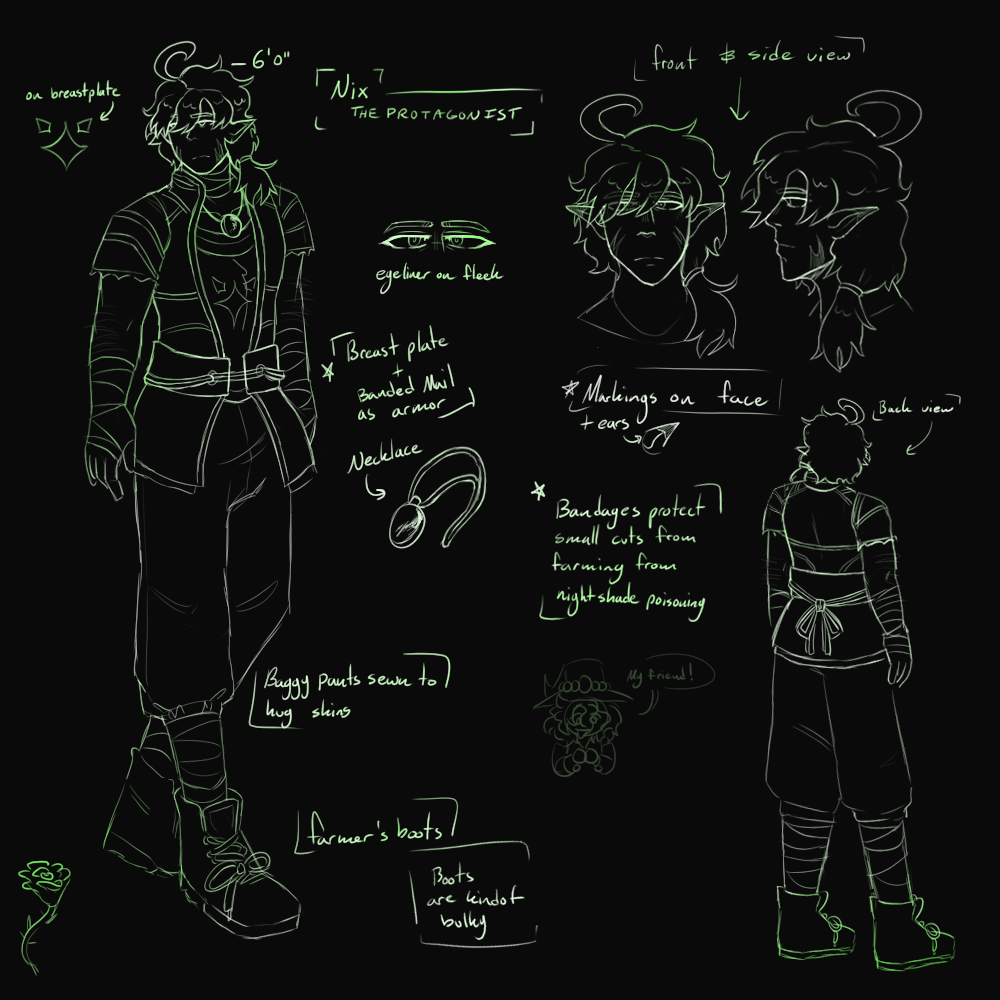 6'0"
on breastplate
Nix
THE PROTAGONIST
front & side view
eyeliner on fleek
Breast plate
+
Banded Mail
as armor
Necklace
Markings on face
+ ears
Back view
Bandages protect
small cuts from
farming from
nightshade poisoning
My friend!
Baggy pants sewn to
hug shins
farmer's boots
Boots
are kindof
bulky